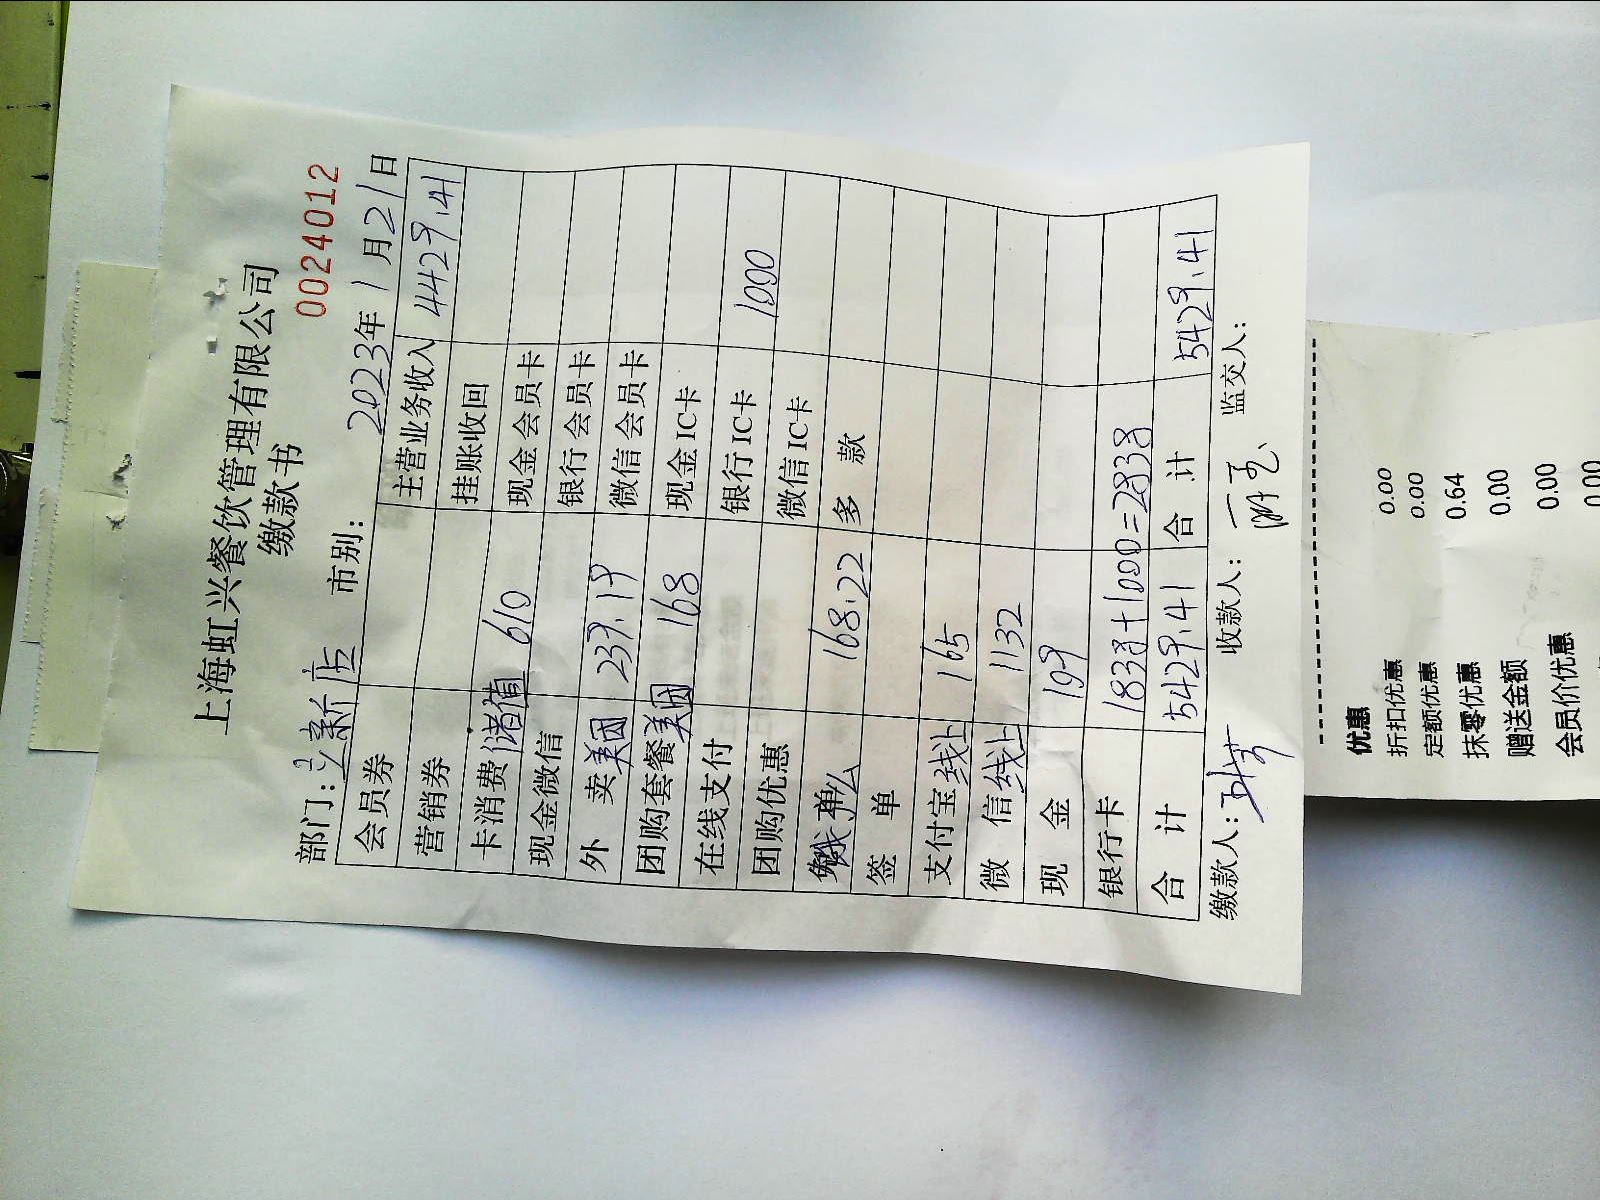 上海虹兴餐饮管理有限公司
缴款书
0024012
部门: 新店 市别: 2023年1月21日
会员券 主营业务收入 4429.41
营销券 挂账收回
卡消费储值 610 现金会员卡
现金微信 银行会员卡
外卖美团 239.19 微信会员卡
团购套餐美团 168 现金IC卡
在线支付 银行IC卡 1000
团购优惠 微信IC卡
168.22 多款
签单
支付宝线上 165
微信线上 1132
现金 109
银行卡 1838+1000=2838
合计 5429.41 合计 5429.41
缴款人: 收款人: 监交人:
优惠
折扣优惠 0.00
定额优惠 0.00
抹零优惠 0.64
赠送金额 0.00
会员价优惠 0.00
0.00